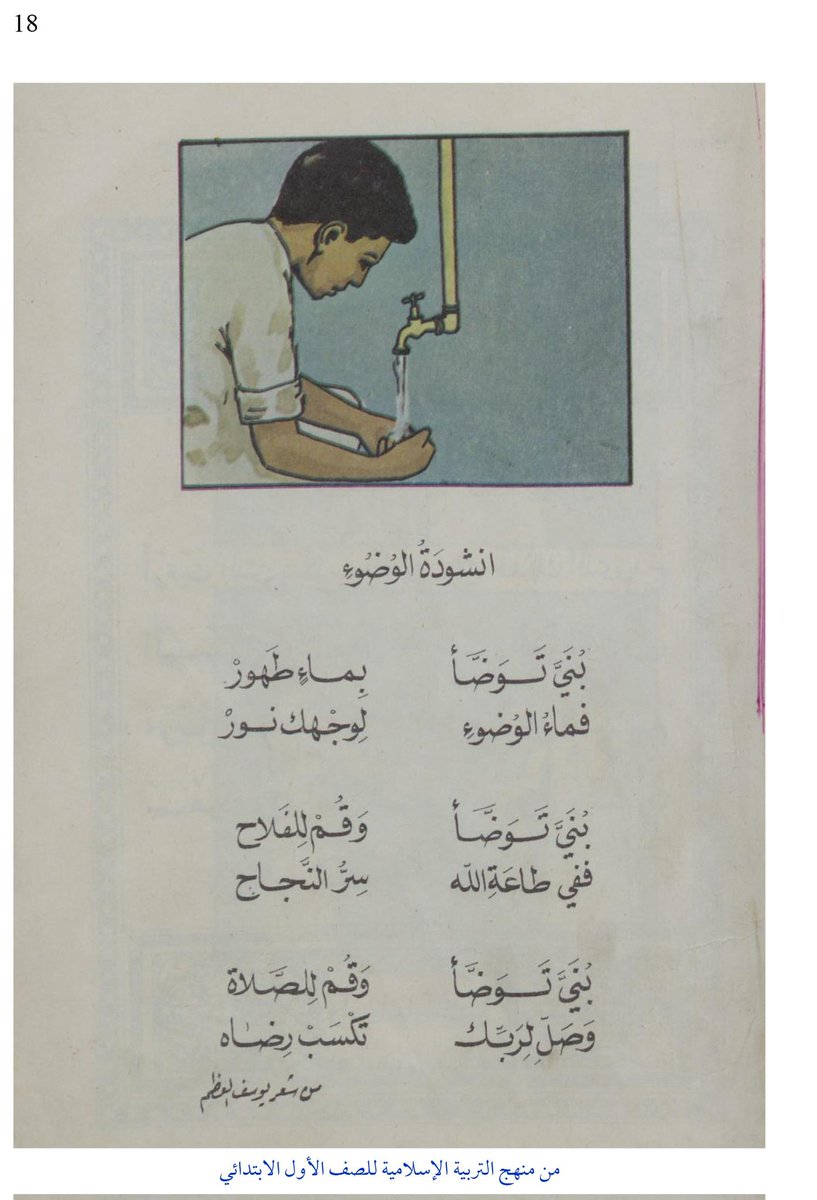 18
انشودَةُ الوُضُوءِ
بُنَيَّ تَـوَضَّأ بِمـاءٍ طَهورْ
فماءُ الوُضوءِ لِوجْهك نـورْ
بُنَيَّ تَـوَضَّأ وَقُمْ لِلفَلاح
ففي طاعَةِ الله سِرُّ النَّجـاح
بُنَيَّ تَـوَضَّأ وَقُمْ لِلصَّلاة
وَصَلِّ لِرَبِّـك تَكْسَبْ رِضاه
من شعر يوسف العظم
من منهج التربية الإسلامية للصف الأول الابتدائي